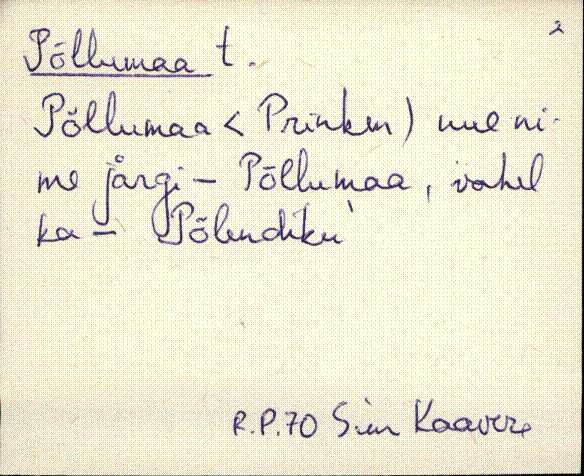 2
Põllumaa t.
Põllumaa < Prinken) uue ni-
me järgi – Põllumaa, vahel
ka – Põlendiku
R.P.70 Siim Kaavere